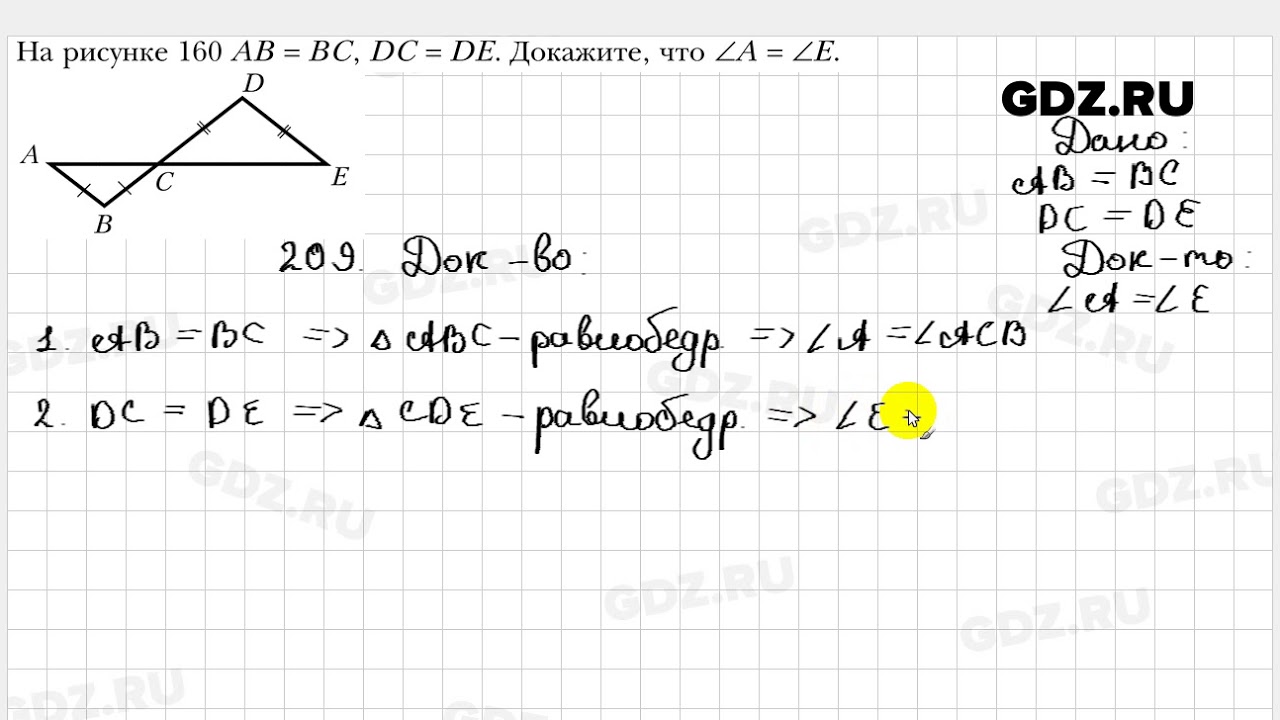 На рисунке 160 AB = BC, DC = DE. Докажите, что ∠A = ∠E.
D
A
C
E
B
GDZ.RU
Дано:
AB = BC
DC = DE
Док-ть:
∠A = ∠E
209. Док-во:
1. AB = BC => △ ABC – равнобедр. => ∠A = ∠ACB
2. DC = DE => △ CDE – равнобедр. => ∠E
GDZ.RU
GDZ.RU
GDZ.RU
GDZ.RU
GDZ.RU
GDZ.RU
GDZ.RU
GDZ.RU
GDZ.RU
GDZ.RU
GDZ.RU